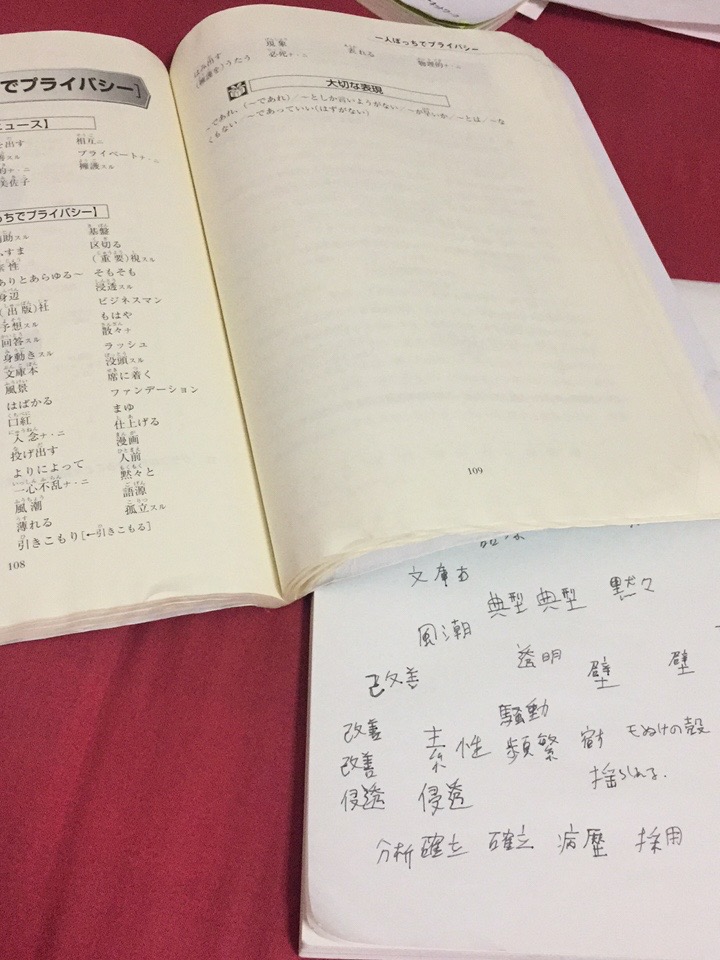 でプライバシー]
ュース】
出す 相互ニ
スル プライベートナ・ニ
的ナ・ニ 擁護スル
美佐子
っちでプライバシー】
助スル 基盤
すま 区切る
素性 (重要)視スル
ありとあらゆる〜 そもそも
身辺 浸透スル
(出版)社 ビジネスマン
予想スル もはや
回答スル 散々ナ
身動きスル ラッシュ
文庫本 没頭スル
風景 席に着く
はばかる ファンデーション
口紅 まゆ
入念ナ・ニ 仕上げる
投げ出す 漫画
よりによって 人前
一心不乱ナ・ニ 黙々と
風潮 語源
薄れる 孤立スル
引きこもり[←引きこもる]
108
一人ぼっちでプライバシー
はみ出す 現象 表れる
(権護を)うたう 必死ナ・ニ 物理的ナ・ニ
大切な表現
〜であれ、(〜であれ)/〜としか言いようがない/〜が早いか/〜とは/〜な
くもない/〜であっていい(はずがない)
109
文庫本
典型 典型 黙々
風潮
透明 壁 壁
改善
騒動
改善 素性 頻繁 宿す もぬけの殻
改善 揺られる.
侵透 侵透
分析 確立 確立 病歴 採用